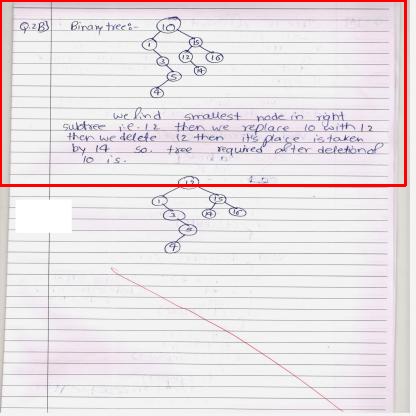 Q.2B) Binary tree:-
10
1 15
3 12 16
5 14
4
we find smallest node in right
subtree i.e. 12 then we replace 10 with 12
then we delete 12 then it's place is taken
by 14 so. tree required after deletion of
10 is.
12
1 15
3 14 16
5
4